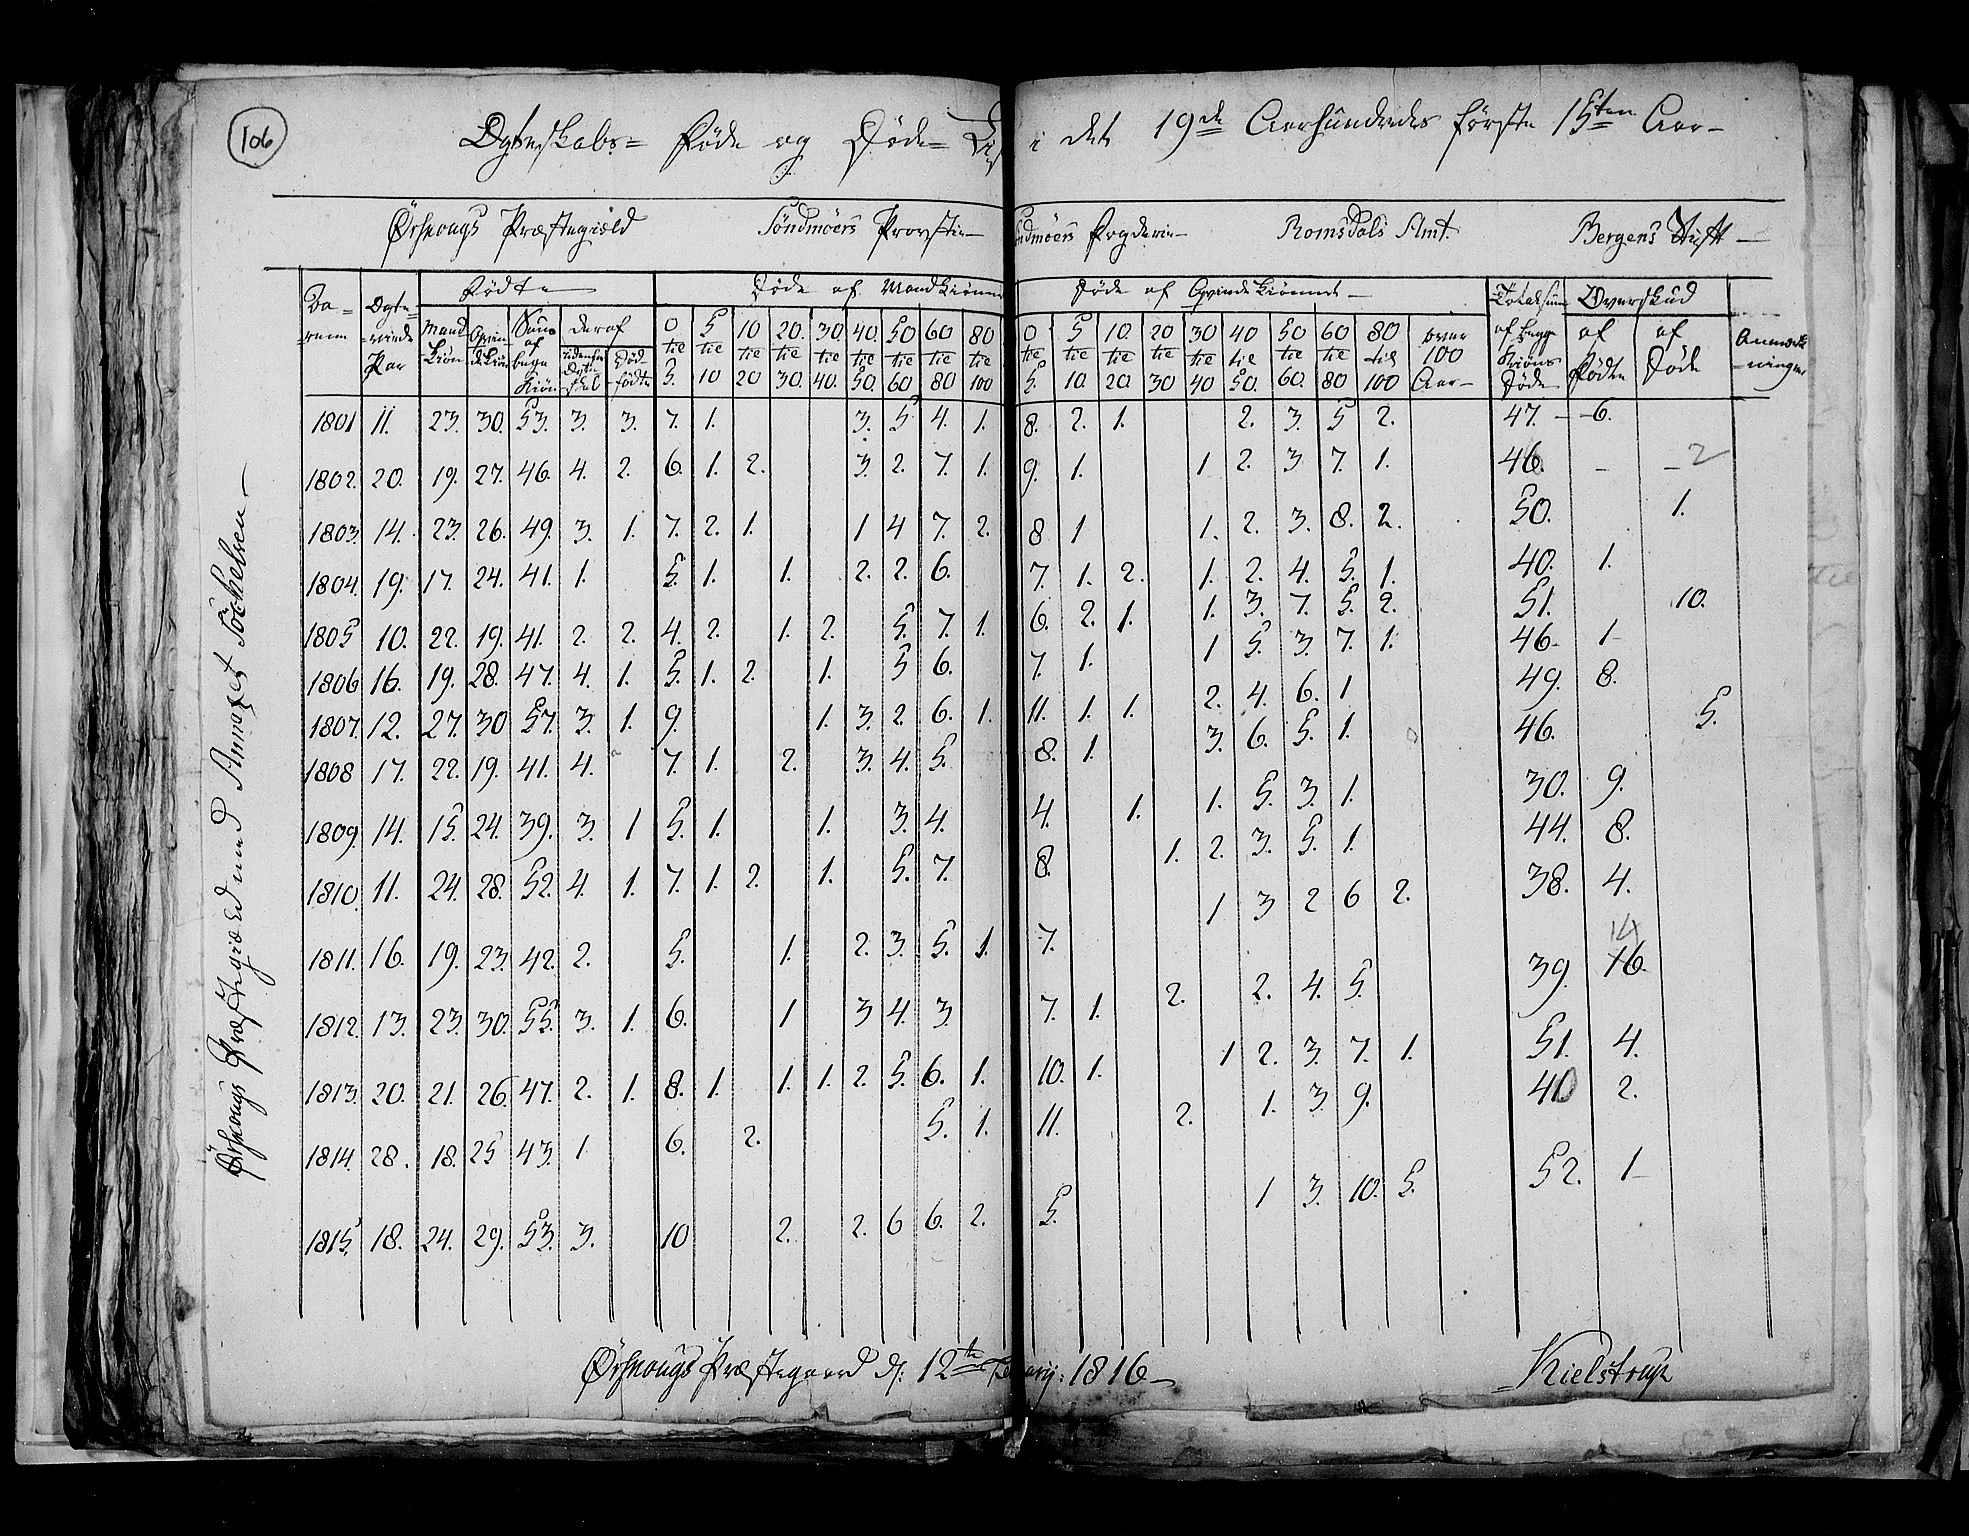 106
Ægteskabs= Føde og Døde= Lis i det 19de Aarhundredes første 15ten Aar-
Ørskougs Præstegield Söndmöers Provstie- ndmöers Fogderie- Romsdals Amt. Bergens Stift-
Födte Döde af Mandkiönnet Döde af Qvindekiönnet- Totalsum Overskud
Aa- Ægte= Mand Qvin Sum deraf 0 5 10 20. 30. 40. 50 60 80 0 5 10. 20 30 40 50 60 80 over af begge af af Anmærk
-rene -viede kiön dekiön af udenfor Död- tie tie tie tie tie tie tie tie tie tie tie tie tie tie til tie tie til 100 Kiöns Födte Döde -ninger
Par begge Ægte- födte 5. 10 20 30. 40. 50. 60 80 100 5. 10. 20. 30 40 50. 60. 80 100 Aar- Döde
Kiön skab
1801 11. 23. 30. 53. 3. 3. 7. 1. 3. 5 4. 1. 8. 2. 1. 2. 3. 5 2. 47. -6.
1802. 20. 19. 27. 46. 4. 2. 6. 1. 2. 3. 2. 7. 1. 9. 1. 1 2. 3 7. 1. 46. - -2
1803. 14. 23. 26. 49. 3. 1. 7. 2. 1. 1 4 7. 2. 8 1 1. 2. 3. 8. 2. 50. 1.
1804. 19. 17. 24. 41. 1. 5. 1. 1. 2. 2. 6. 7. 1. 2. 1. 2. 4. 5. 1. 40. 1.
1805 10. 22. 19. 41. 2. 2. 4. 2. 1. 2. 5. 7. 1. 6. 2. 1. 1. 3. 7. 5. 2. 51. 10.
1806 16. 19. 28. 47. 4. 1. 5. 1. 2. 1. 5 6. 7. 1. 1 5. 3. 7. 1. 46- 1-
1807. 12. 27. 30 57. 3. 1. 9. 1. 3. 2. 6. 1. 11. 1. 1. 2. 4. 6. 1 49. 8.
1808 17. 22. 19. 41. 4. 7. 1. 2. 3. 4. 5. 8. 1. 3. 6. 5. 1. 46. 5.
1809. 14. 15. 24. 39. 3. 1 5. 1. 1. 3. 4. 4. 1. 1. 5. 3. 1. 30. 9.
1810. 11. 24. 28. 52. 4. 1. 7. 1. 2. 1. 5. 7. 8. 1. 2. 3. 5. 1. 44. 8.
1811. 16. 19. 23. 42. 2. 5. 1. 2. 3. 5. 1. 7. 1 3 2 6 2. 38. 4.
14
1812. 13. 23. 30. 53. 3. 1. 6. 1 3 4. 3. 7. 1. 2. 2. 4. 5. 39. 16.
1813. 20. 21. 26. 47. 2. 1. 8. 1. 1. 1. 2. 5. 6. 1. 10. 1. 1 2. 3. 7. 1. 51. 4.
1814. 28. 18. 25 43. 1 6. 2. 5. 1. 11. 2. 1. 3. 9. 40 2.
1815. 18. 24. 29. 53. 3. 10 2. 2. 6 6. 2. 5. 1 3. 10. 5. 52. 1-
Ørskougs Præstegaard d: 12te Februarij: 1816- Kielstrup
Ørskougs Præstegiæld med Annexet Söchelven-